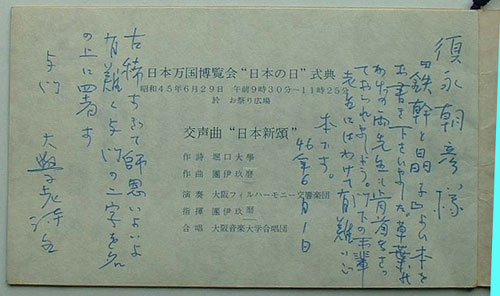 須永朝彦様
鉄幹と晶子といふ本を
お書き下さいました。草葉の
かげの両先生も肯首なさっ
ておられませう。門下の末輩
老生にはわけて有難い
本です。
46年6月1日
日本万国博覧会“日本の日”式典
昭和45年6月29日 午前9時30分〜11時25分
於 お祭り広場
交声曲“日本新頌”
作詩 堀口大學
作曲 團伊玖磨
演奏 大阪フィルハーモニー交響楽団
指揮 團伊玖磨
合唱 大阪音楽大学合唱団
古稀すぎて師恩いよいよ
有難く与門の二字を名
の上に署す
与門 大學老詩生